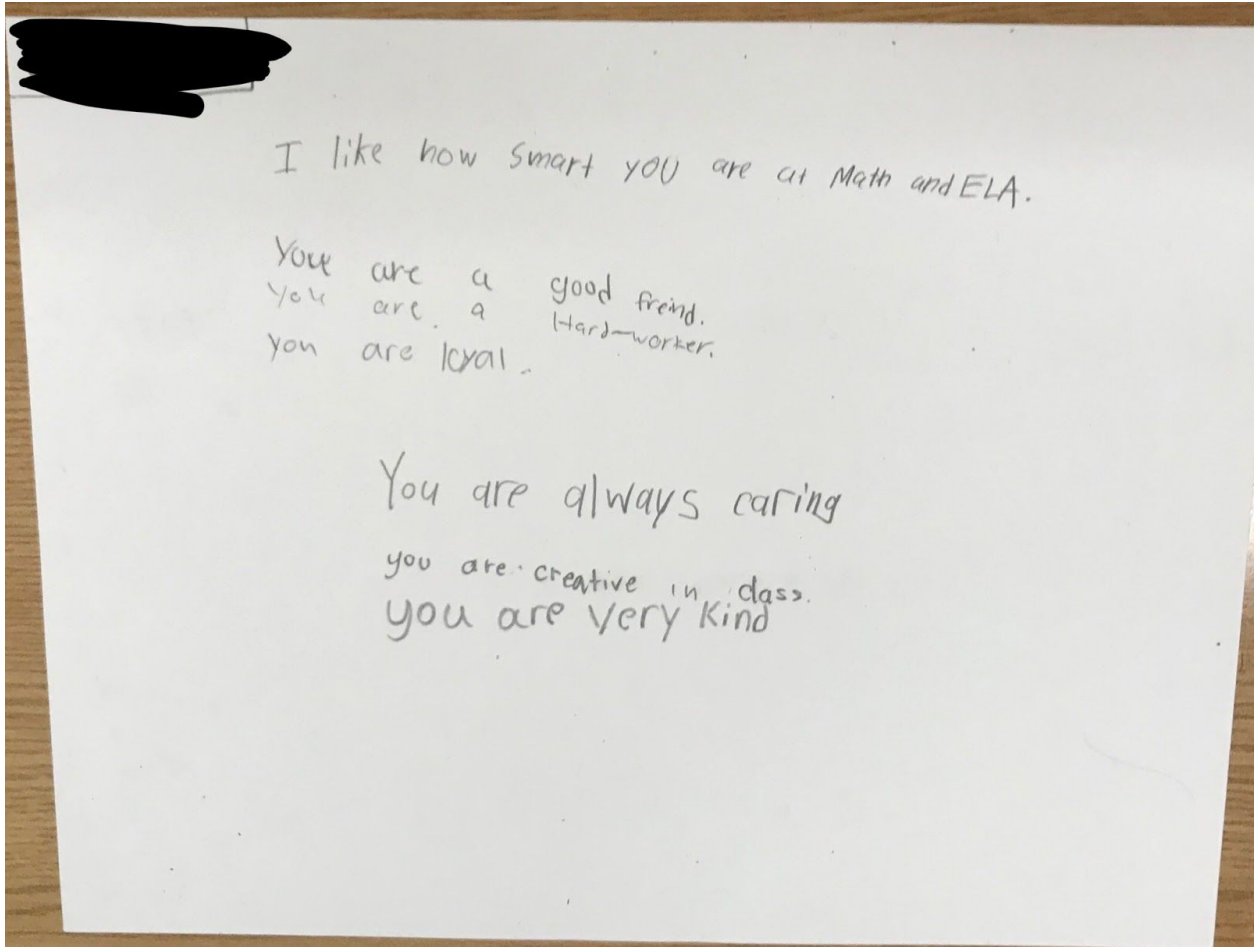 I like how smart you are at Math and ELA.
You are a good freind.
you are a Hard-worker.
you are loyal.
You are always caring
you are creative in class.
you are very kind